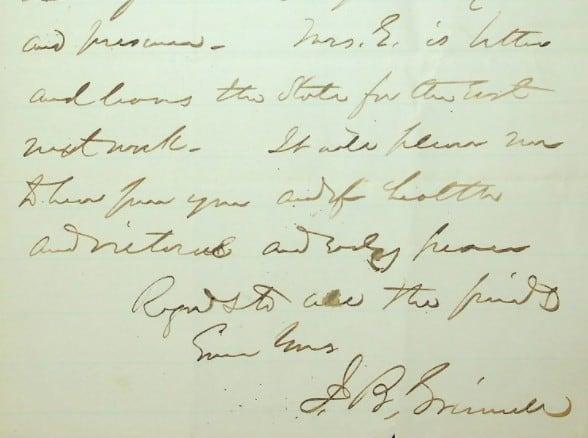 and
Mrs. E. is better
and leaves the State for the East
next week. It will please me
to hear from you and of health
and victories and early peace
Regards to all the friends
Ever Yours
J. B. Grinnell